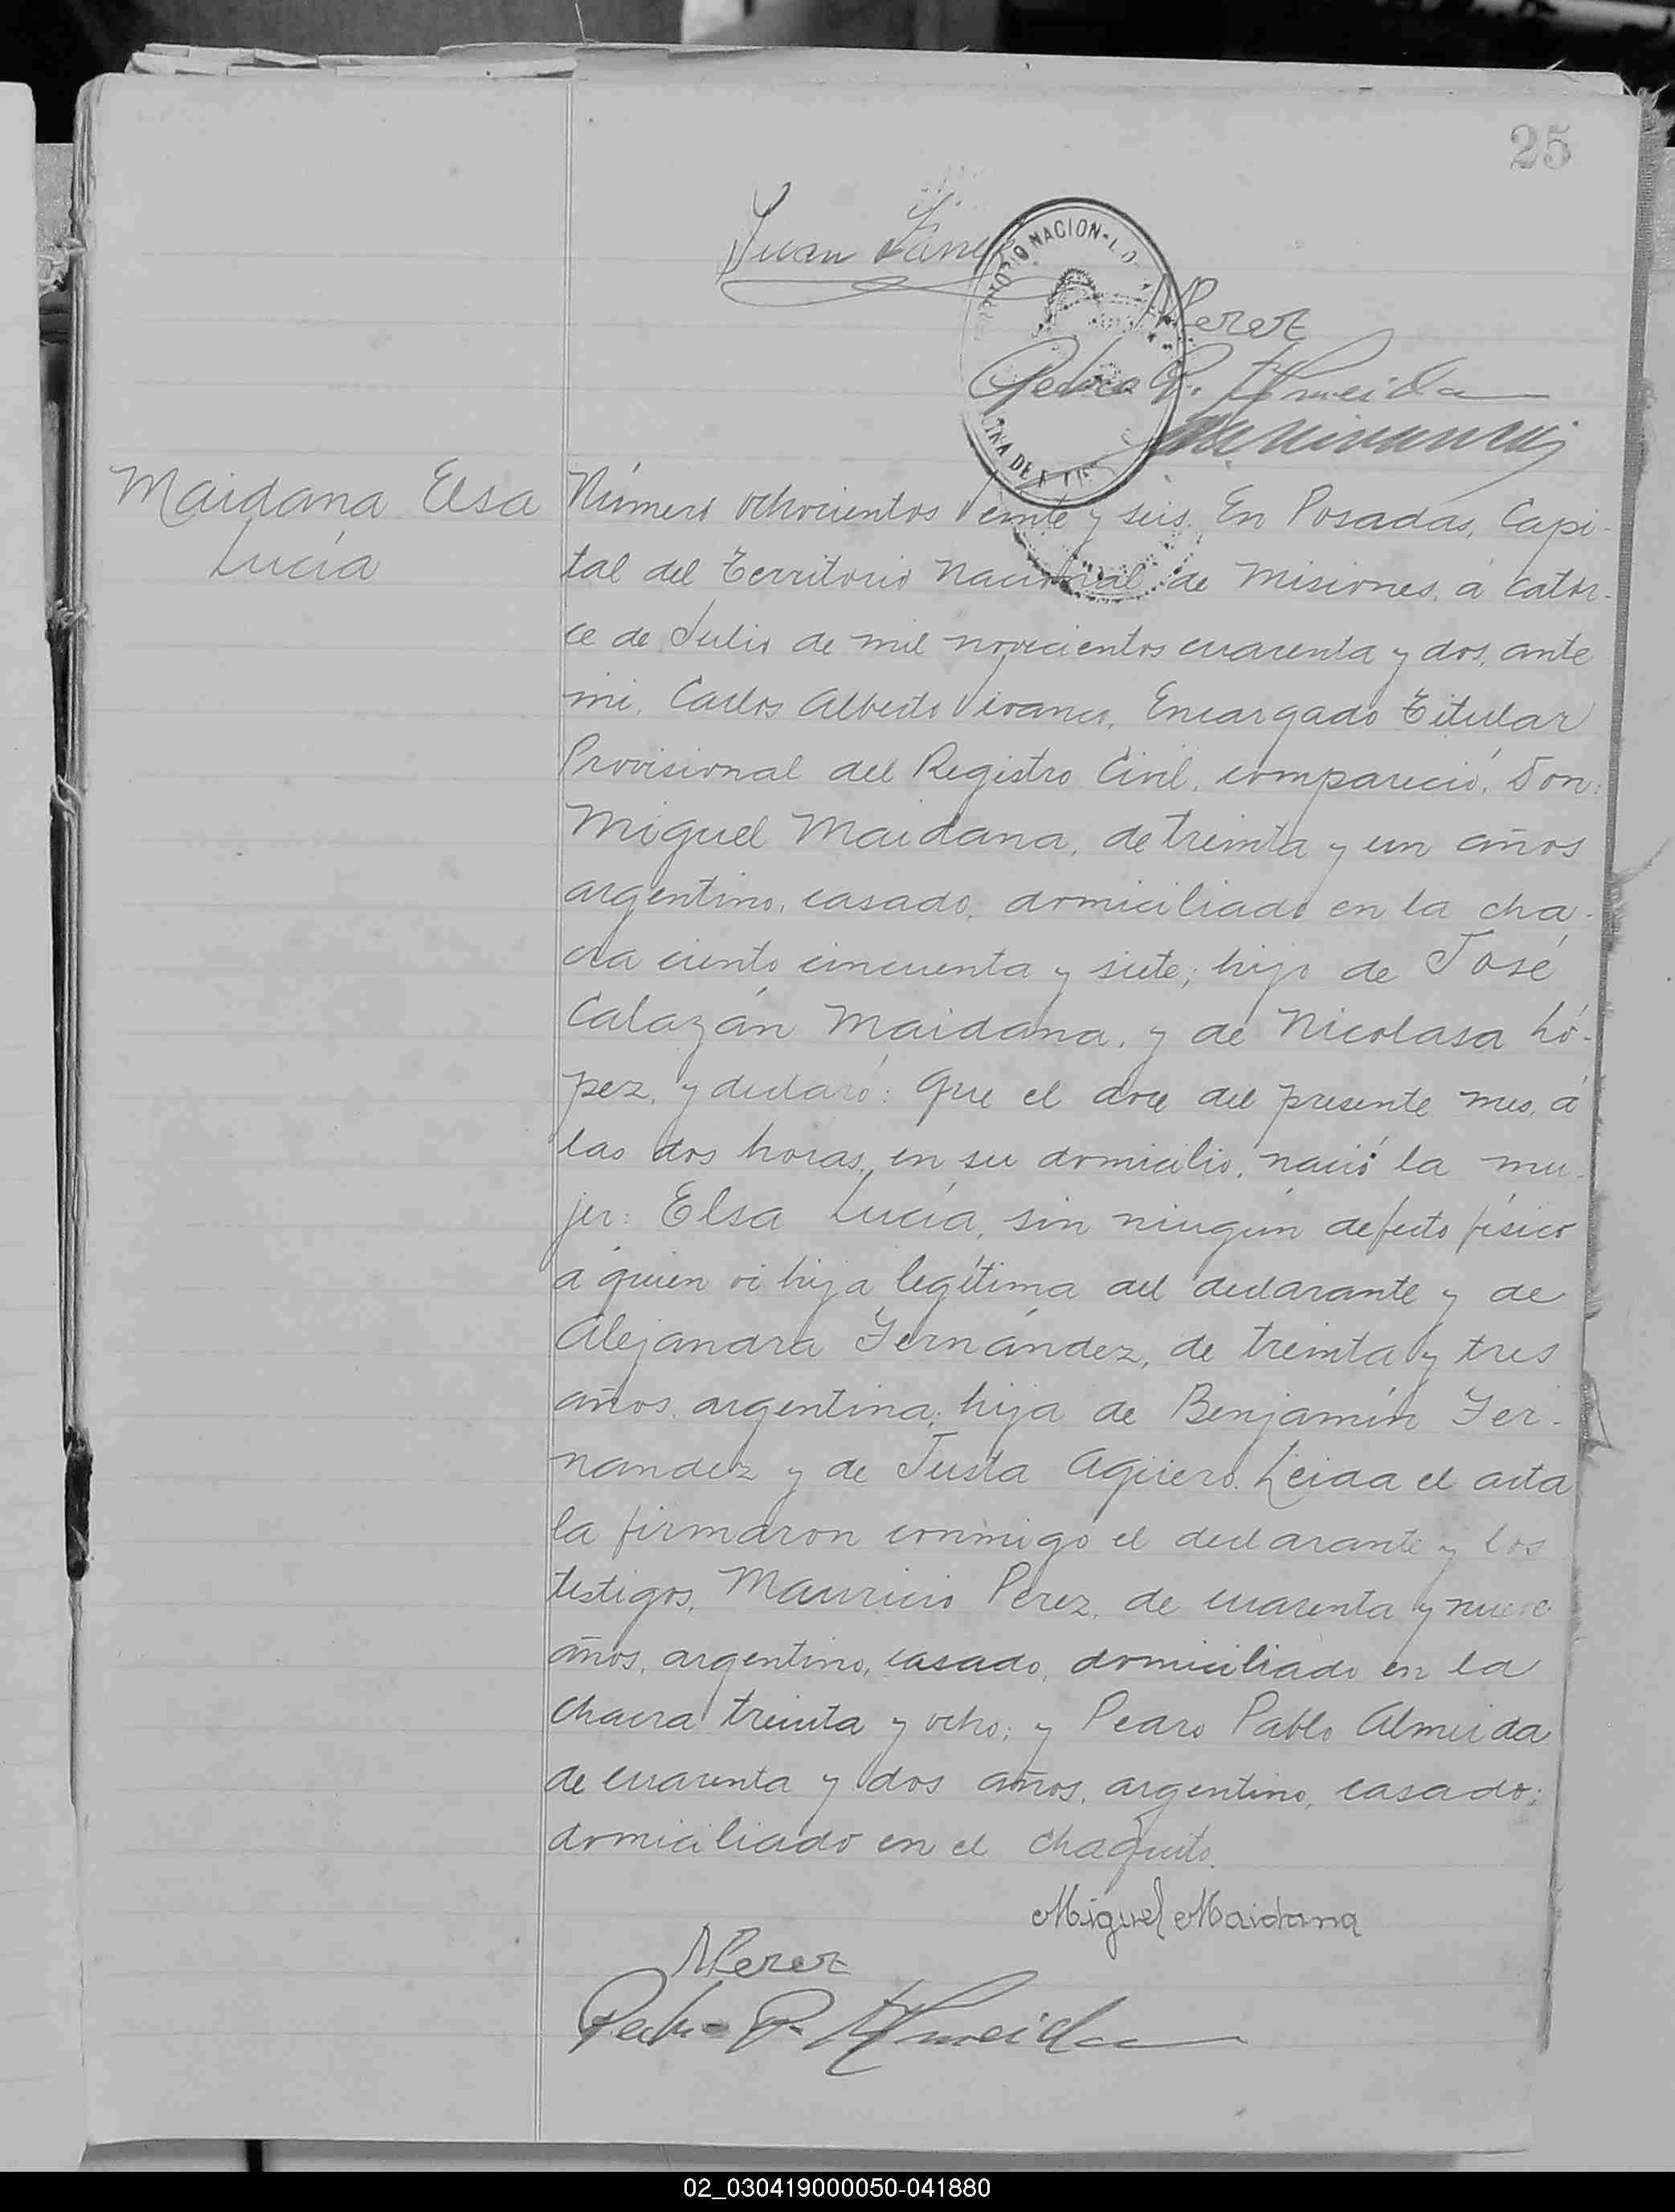 25
Juan
NACION
Perez
Pedro P. Almeida
Maidana Elsa
Lucía
Número ochocientos veinte y seis. En Posadas, Capi-
tal del Territorio Nacional de Misiones, á cator-
ce de Julio de mil novecientos cuarenta y dos, ante
mi, Carlos Alberto Vivanco, Encargado Titular
Provisional del Registro Civil, compareció, Don:
Miguel Maidana, de treinta y un años
argentino, casado, domiciliado en la cha-
cra ciento cincuenta y siete; hijo de José
Calazán Maidana, y de Nicolasa Ló-
pez, y declaró: Que el doce del presente mes, á
las dos horas, en su domicilio, nació la mu-
jer: Elsa Lucía, sin ningún defecto físico
á quien vi hija legítima del declarante y de
Alejandra Fernández, de treinta y tres
años, argentina; hija de Benjamín Fer-
nandez y de Justa Agüero. Leída el acta
la firmaron conmigo el declarante y los
testigos, Mauricio Perez, de cuarenta y nueve
años, argentino, casado, domiciliado en la
chacra treinta y ocho; y Pedro Pablo Almeida
de cuarenta y dos años, argentino, casado;
domiciliado en el chaquito.
Miguel Maidana
MPerez
Pedro P. Almeida
02_030419000050-041880